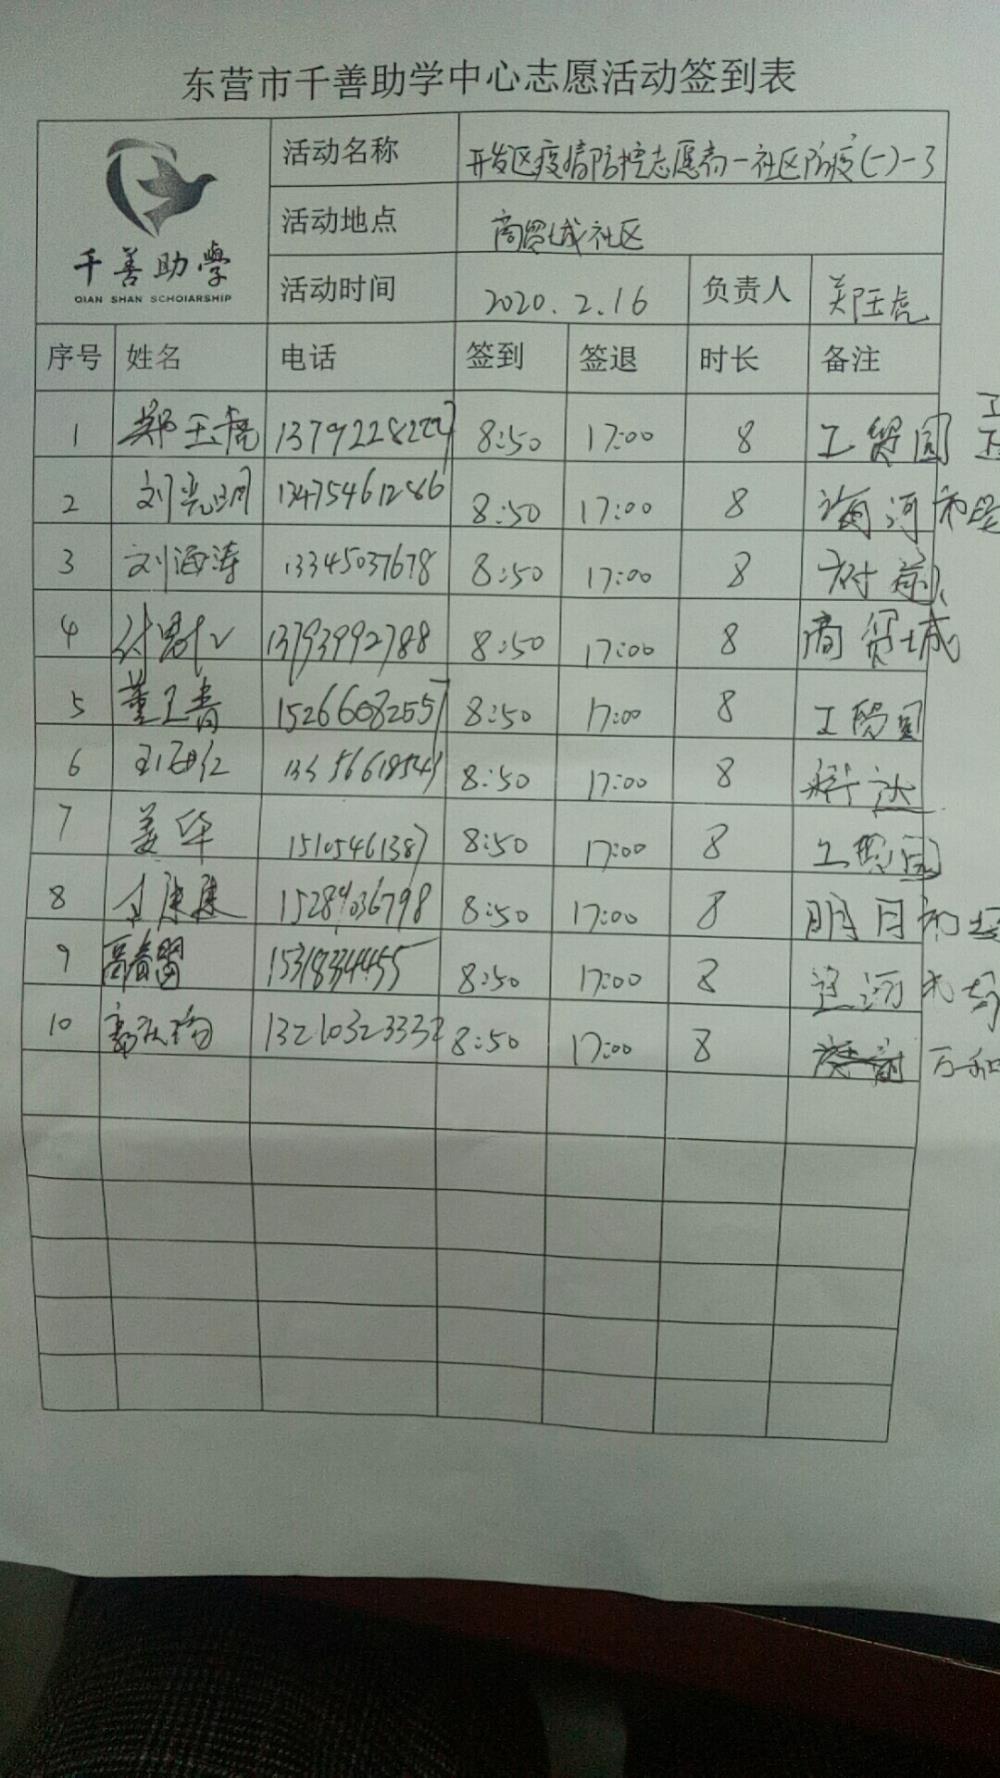 东营市千善助学中心志愿活动签到表
千善助學
QIAN SHAN SCHOlARSHIP
活动名称 开发区疫情防控志愿者一社区防疫(一)-3
活动地点 商贸城社区
活动时间 2020.2.16 负责人 郑玉虎
序号 姓名 电话 签到 签退 时长 备注
1 郑玉虎 8:50 17:00 8 工贸园
2 刘光明 13475461286 8:50 17:00 8 海河
3 刘海涛 13345037678 8:50 17:00 8
4 13793992788 8:50 17:00 8 商贸城
5 董卫青 15266082557 8:50 17:00 8 工贸园
6 8:50 17:00 8 科达
7 姜华 15105461387 8:50 17:00 8 工贸园
8 康康 15284036798 8:50 17:00 8 明月
9 高春留 15318334455 8:50 17:00 8
10 13210323332 8:50 17:00 8 万和